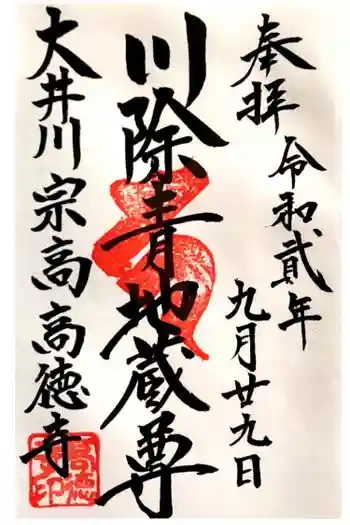 奉拝
令和貳年
九月廿九日
川除青地蔵尊
大井川宗高高徳寺